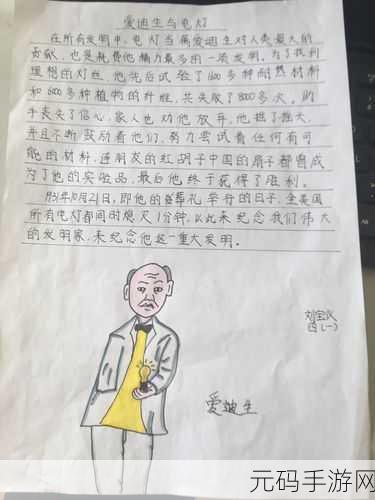 爱迪生与电灯
在所有发明中，电灯当属爱迪生对人类最大的
贡献，也是耗费他精力最多的一项发明。为了找到
理想的灯丝，他先后试验了1600多种耐热材料
和6000多种植物的纤维，共失败了8000多次。助
手丧失了信心，家人也劝他放弃，他想了想大，
并且不断鼓励着他们，努力尝试着任何有可
能的材料，连朋友的红胡子中国的扇子都曾成
为了他的实验品，最后他终于获得了胜利。
1931年10月21日，即他的葬礼举行的日子，全美国
所有电灯都同时熄灭1分钟，以此来纪念我们伟大
的发明家，来纪念他这一重大发明。
四（一）
爱迪生
元码手游网